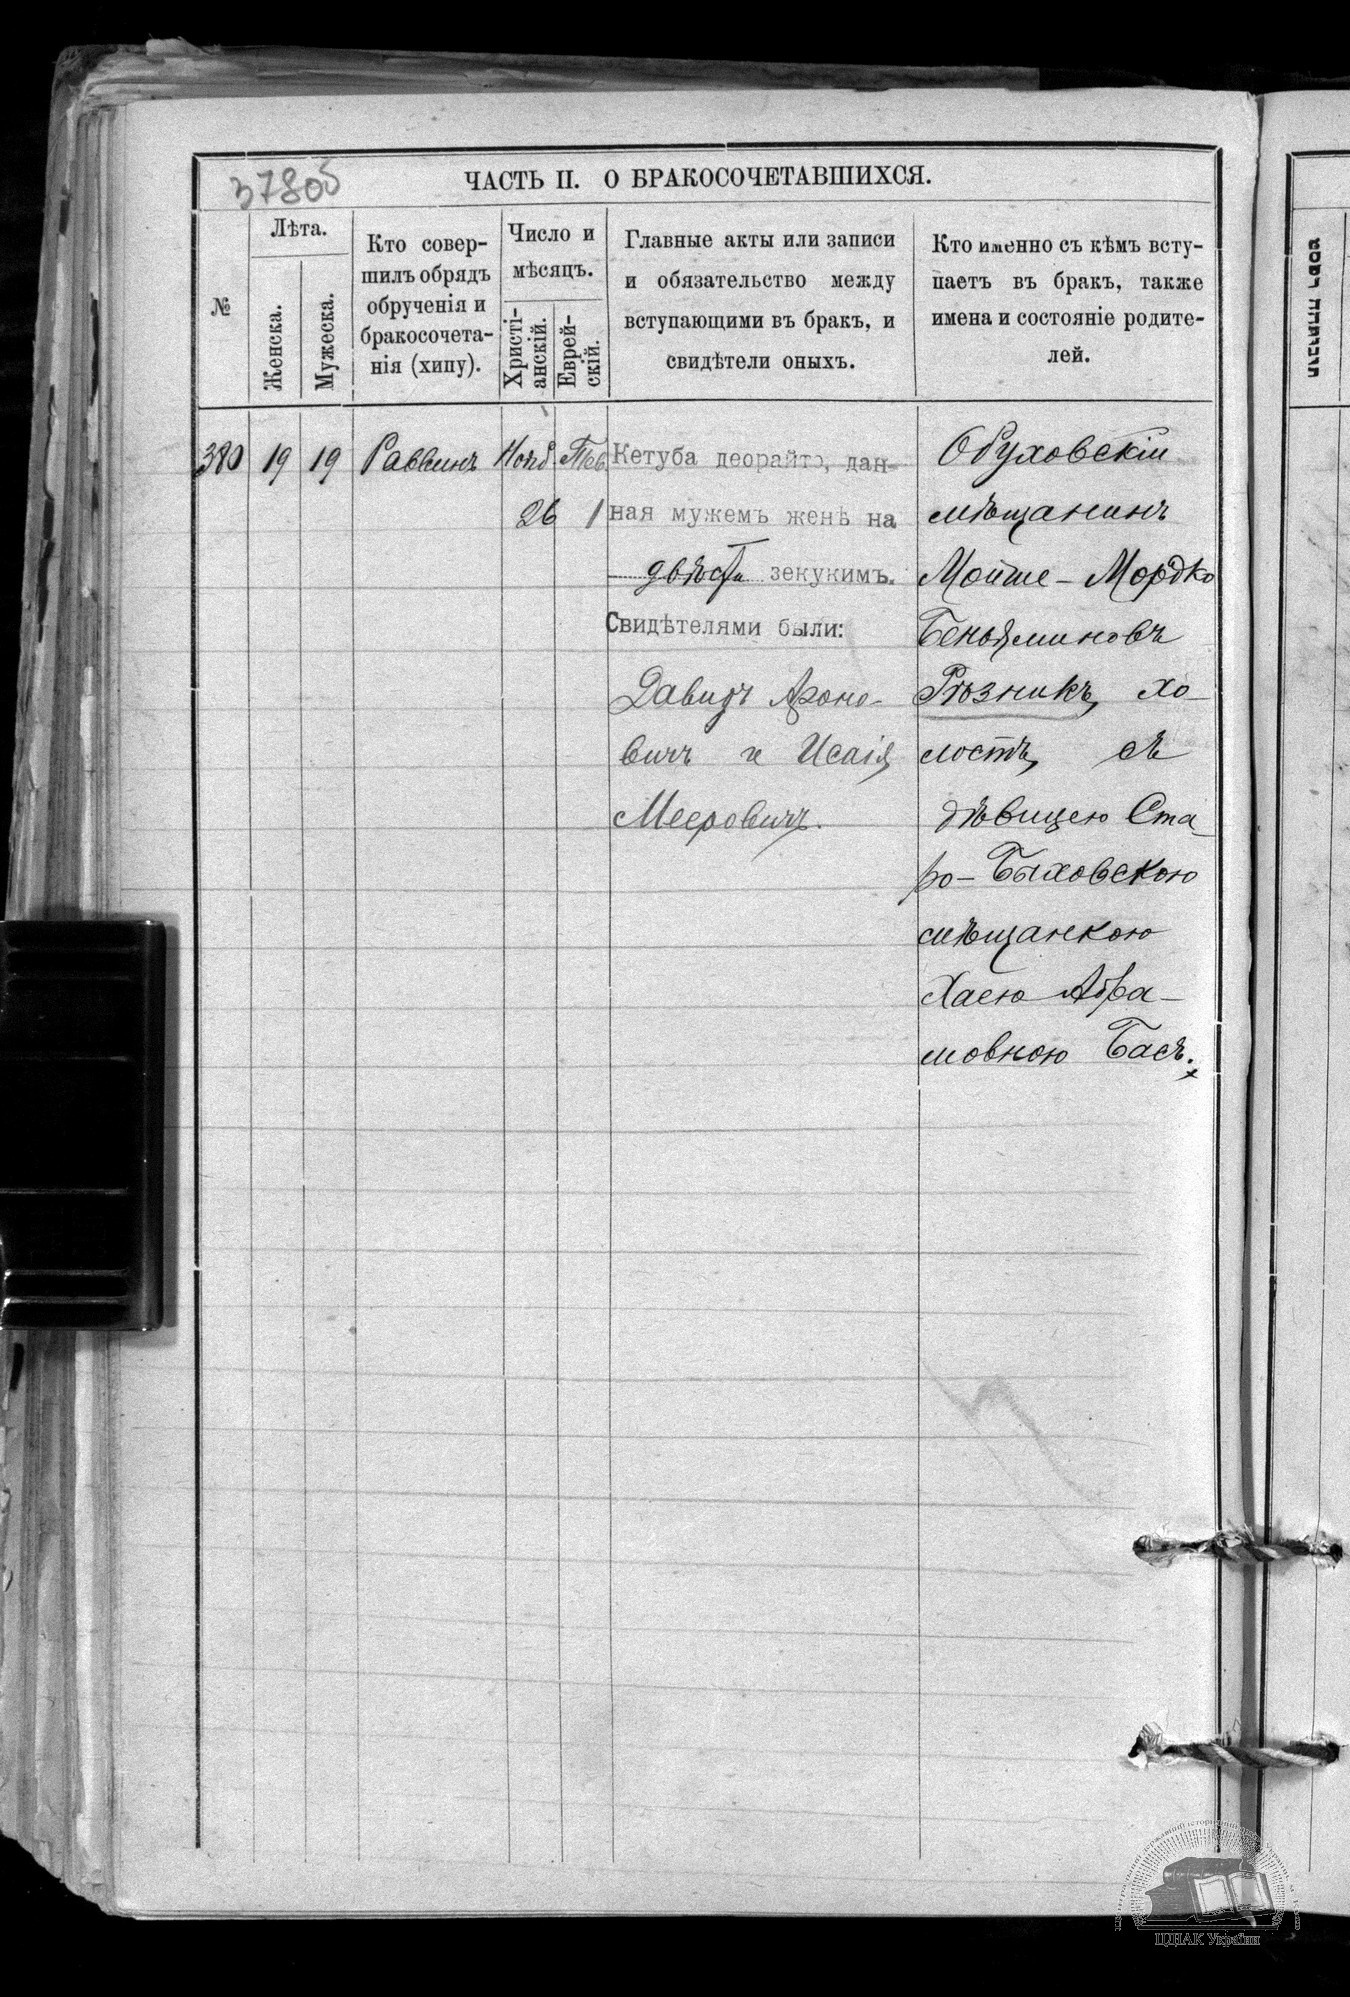 37805
ЧАСТЬ II. О БРАКОСОЧЕТАВШИХСЯ.
№
Лѣта.
Женска.
Мужеска.
Кто совер-
шилъ обрядъ
обрученія и
бракосочета-
нія (хипу).
Число и
мѣсяцъ.
Христі-
анскій.
Еврей-
скій.
Главные акты или записи
и обязательство между
вступающими въ бракъ, и
свидѣтели оныхъ.
Кто именно съ кѣмъ всту-
паетъ въ бракъ, также
имена и состояніе родите-
лей.
380 19 19 Раввинъ Нояб. Тев.
26 1
Кетуба деорайто, дан-
ная мужемъ женѣ на
двѣсти зекукимъ.
Свидѣтелями были:
Давидъ Ароно-
вичъ и Исаія
Мееровичъ.
Обуховскій
мѣщанинъ
Мойше - Мордко
Беньяминовъ
Рѣзникъ, хо-
лостъ, съ
дѣвицею Ста-
ро-Быховскою
мѣщанкою
Хаею Абра-
мовною Басъ.
ЦДІАК України